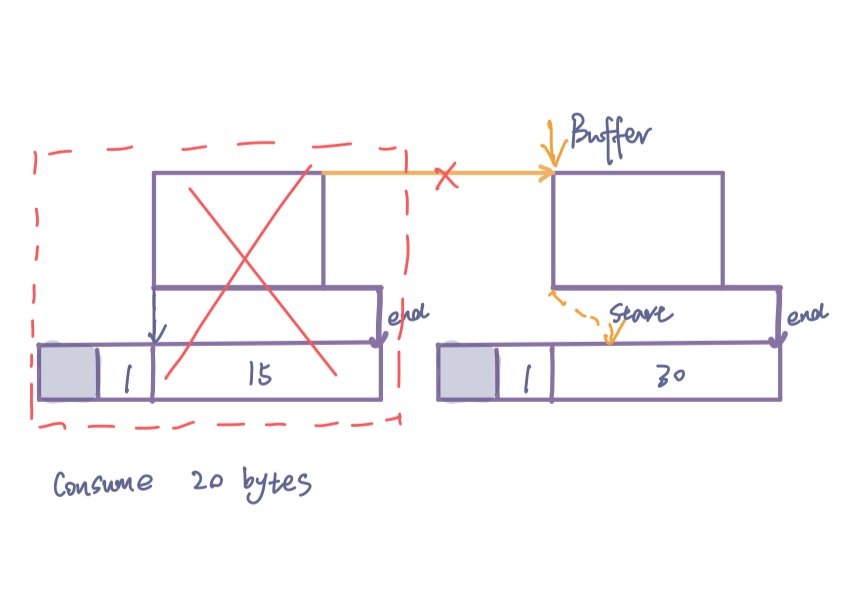 Buffer
end
Stare
end
1
15
1
30
Consume 20 bytes